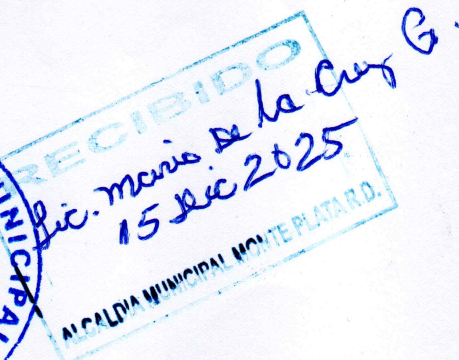 RECIBIDO
Lic. Mario De la Cruz G.
15 Dic 2025
ALCALDIA MUNICIPAL MONTE PLATA R.D.
UNICIPAL